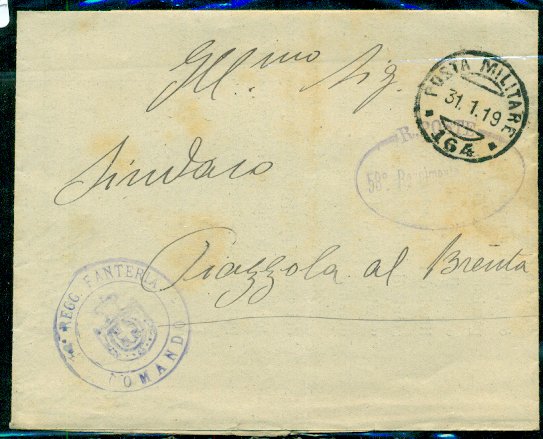 Ill.mo Sig.
Sindaco
Piazzola al Brenta
POSTA MILITARE
31.1.19
164
R. POSTE
58°
REGG. FANTERIA
COMANDO